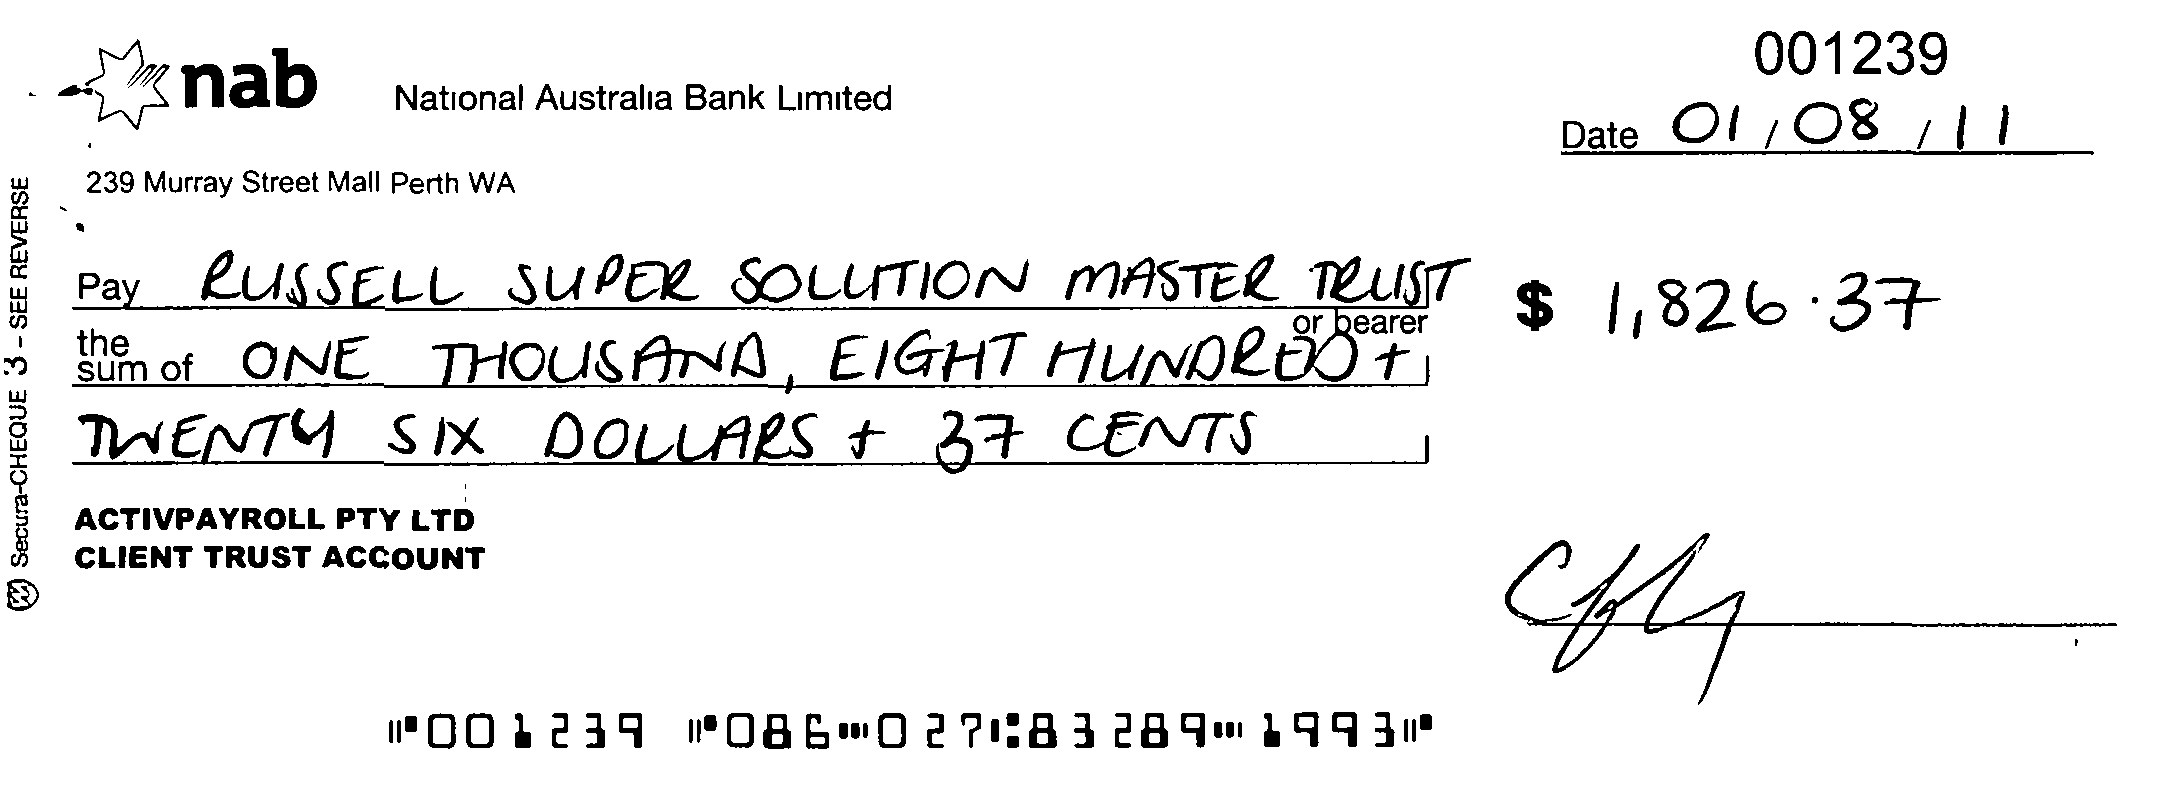 nab National Australia Bank Limited
001239
Date 01/08/11
239 Murray Street Mall Perth WA
Secura-CHEQUE 3 - SEE REVERSE
Pay RUSSELL SUPER SOLUTION MASTER TRUST
or bearer
$ 1,826.37
the sum of ONE THOUSAND, EIGHT HUNDRED +
TWENTY SIX DOLLARS + 37 CENTS
ACTIVPAYROLL PTY LTD
CLIENT TRUST ACCOUNT
⑈001239 ⑈086⑉027⑆83289⑉1993⑈